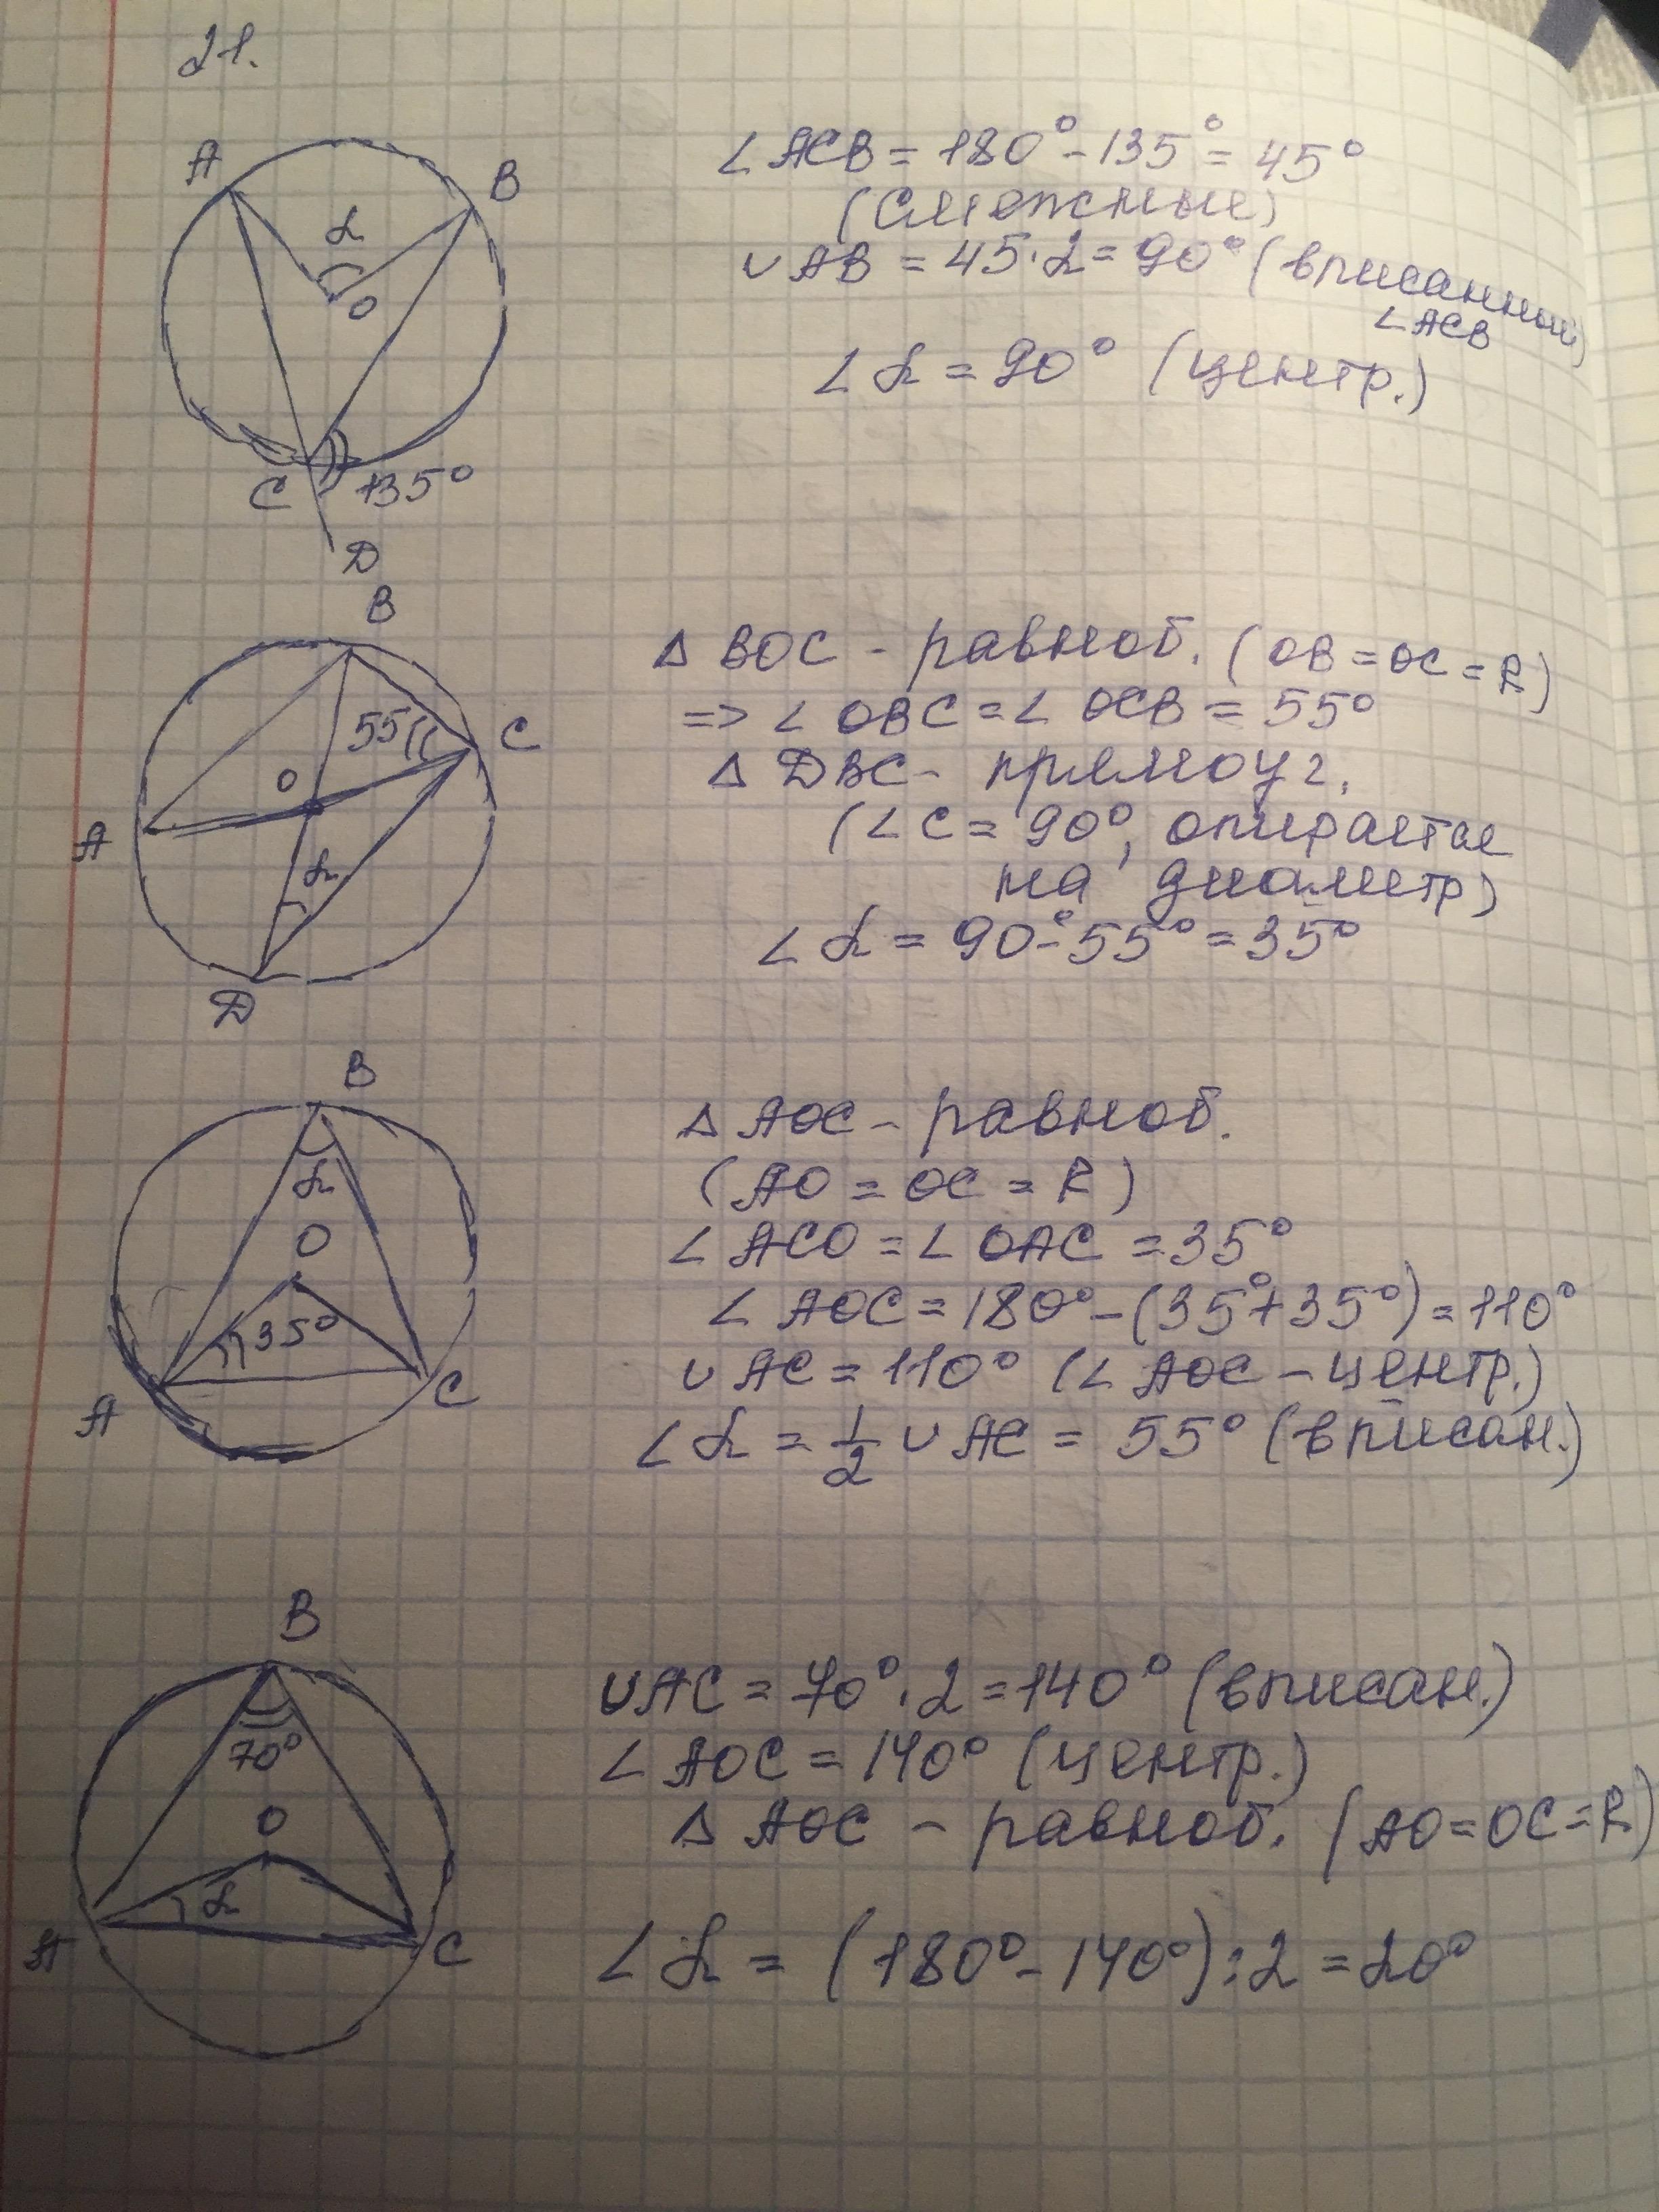 21.
A
B
α
O
C
135°
D
∠ACB = 180° - 135° = 45°
(смежные)
∪ AB = 45·2 = 90° (вписанный
∠ACB)
∠α = 90° (центр.)
B
55
C
O
A
α
D
Δ BOC - равноб. (OB = OC = R)
=> ∠OBC = ∠OCB = 55°
Δ DBC - прямоуг.
(∠C = 90°, опирается
на диаметр)
∠α = 90° - 55° = 35°
B
α
O
35°
A
C
Δ AOC - равноб.
(AO = OC = R)
∠ACO = ∠OAC = 35°
∠AOC = 180° - (35° + 35°) = 110°
∪ AC = 110° (∠AOC - центр.)
∠α = 1/2 ∪ AC = 55° (вписан.)
B
70°
O
α
A
C
∪AC = 70°·2 = 140° (вписан.)
∠AOC = 140° (центр.)
Δ AOC - равноб. (AO = OC = R)
∠α = (180° - 140°) : 2 = 20°